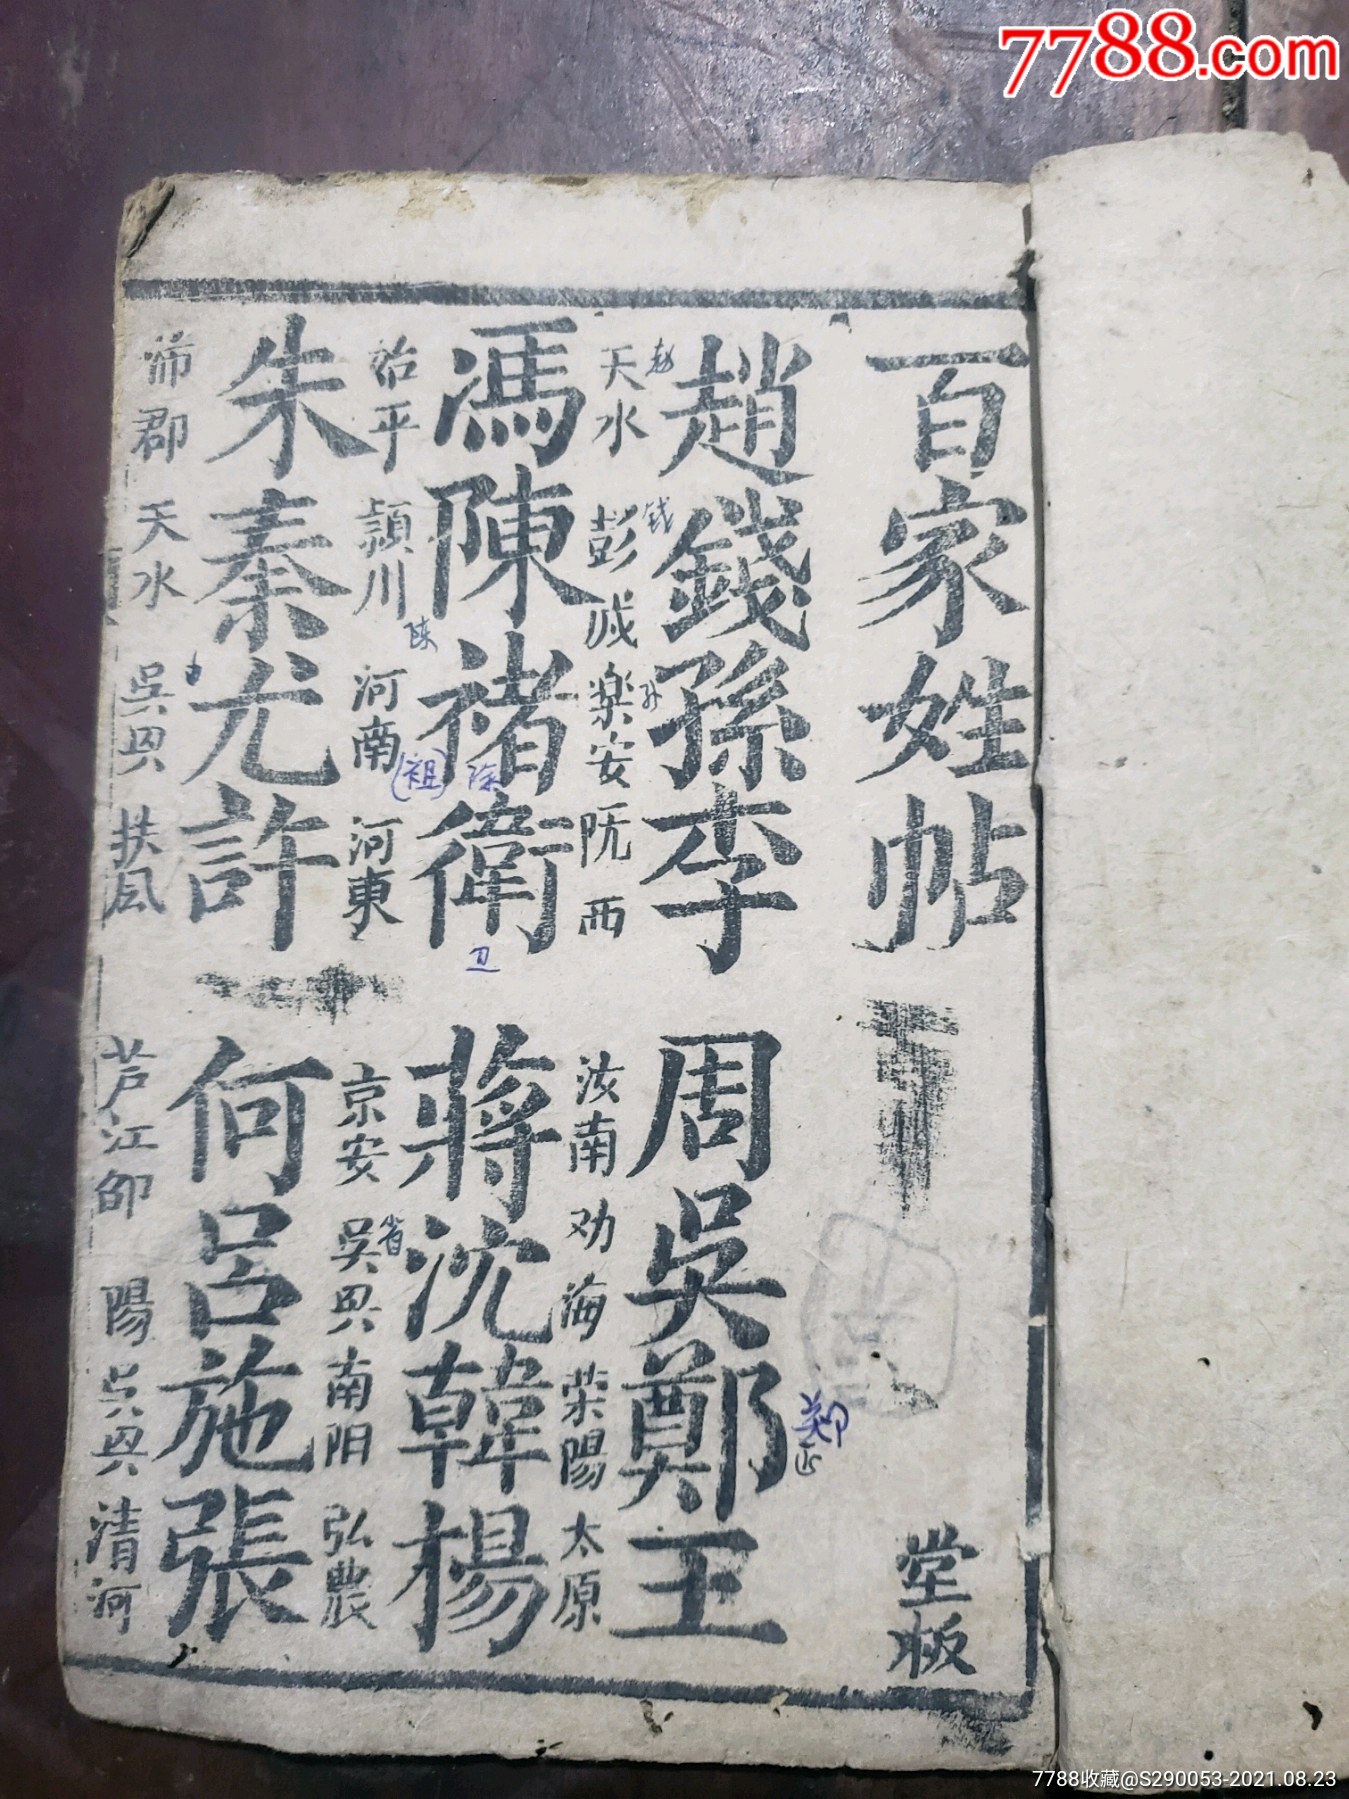 7788.com
百家姓帖
堂板
趙錢孫李 周吳鄭王
赵 钱 孙 郑
天水 彭 楽安 西 汝南 劝海 荣陽 太原
馮陳褚衛 蔣沈韓楊
陈 (祖) 卫 省
平 頴川 河南 河東 京安 吳 南阳 弘農
朱秦尤許 何呂施張
郡 天水 吳 扶風 芦江 陽 清河
7788收藏@S290053-2021.08.23